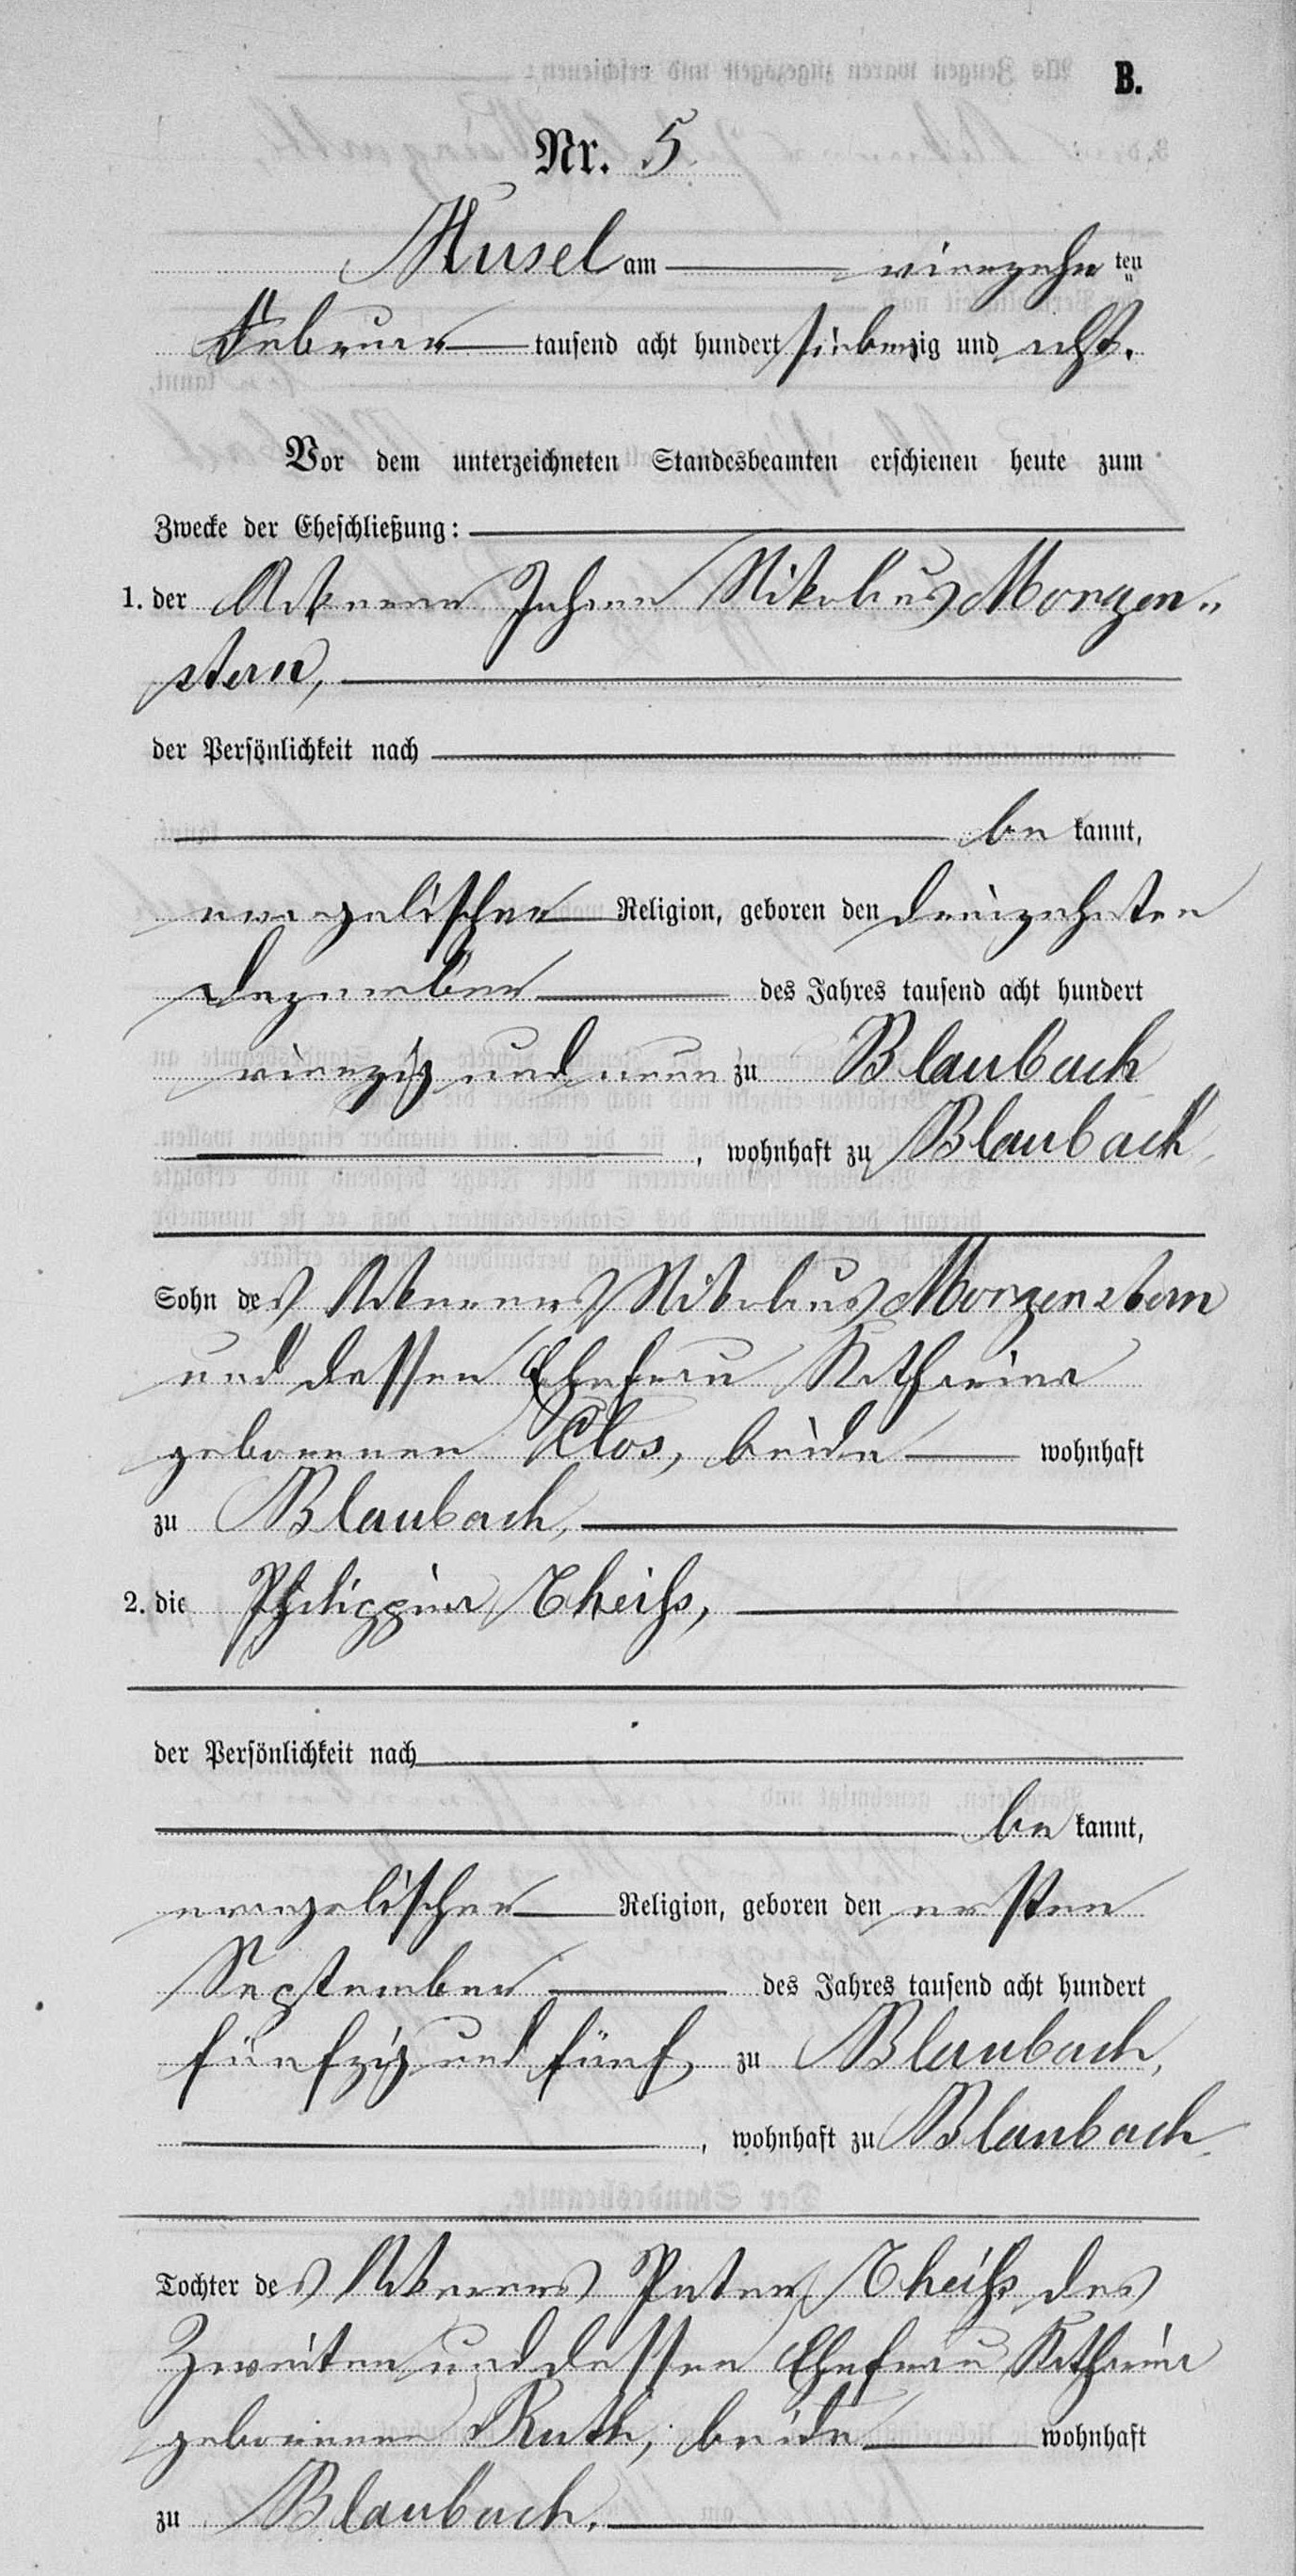 B.
Nr. 5
Kusel am vierzehn ten
Februar tausend acht hundert siebenzig und acht.
Vor dem unterzeichneten Standesbeamten erschienen heute zum
Zwecke der Eheschließung:
1. der Ackerer Johann Nikolaus Morgen„
stern,
der Persönlichkeit nach
be kannt,
evangelischer Religion, geboren den dreizehnten
Dezember des Jahres tausend acht hundert
vierzig und neun zu Blaubach
, wohnhaft zu Blaubach,
Sohn des Ackerers Nikolaus Morgenstern
und dessen Ehefrau Katharina
geborenen Clos, beide wohnhaft
zu Blaubach,
2. die Philippina Theiß,
der Persönlichkeit nach
be kannt,
evangelischer Religion, geboren den ersten
September des Jahres tausend acht hundert
fünfzig und fünf zu Blaubach,
, wohnhaft zu Blaubach
Tochter des Ackerers Peter Theiß des
Zweiten und dessen Ehefrau Katharina
geborenen Ruth, beide wohnhaft
zu Blaubach.